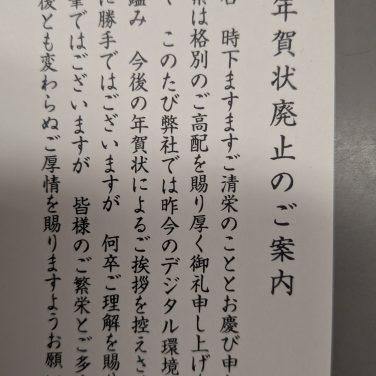 年賀状廃止のご案内
時下ますますご清栄のこととお慶び申
は格別のご高配を賜り厚く御礼申し上げ
このたび弊社では昨今のデジタル環境
鑑み 今後の年賀状によるご挨拶を控えさ
勝手ではございますが 何卒ご理解を賜
ではございますが 皆様のご繁栄とご多
後とも変わらぬご厚情を賜りますようお願